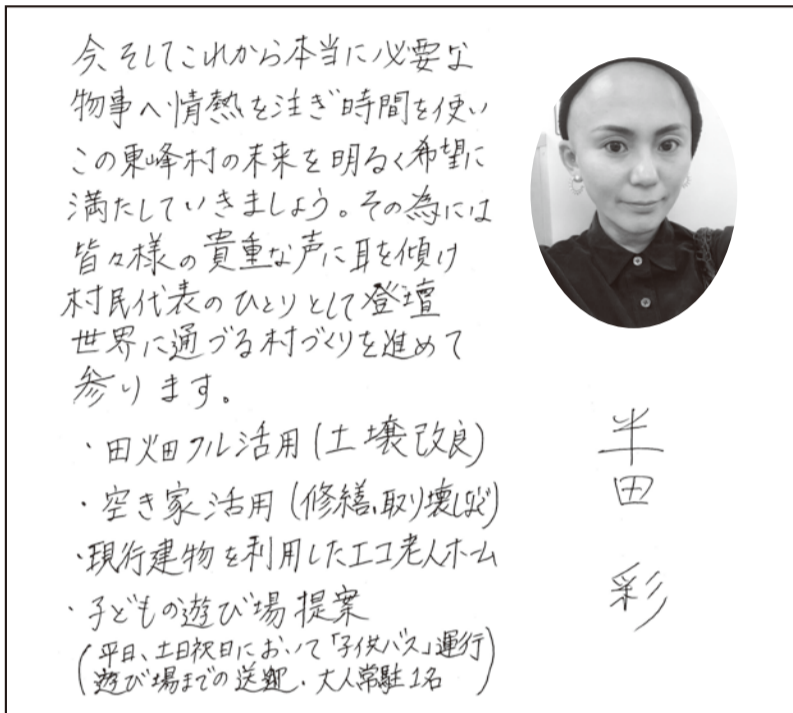 今、そしてこれから本当に必要な
物事へ情熱を注ぎ時間を使い
この東峰村の未来を明るく希望に
満たしていきましょう。その為には
皆々様の貴重な声に耳を傾け
村民代表のひとりとして登壇
世界に通づる村づくりを進めて
参ります。
・田畑フル活用(土壌改良)
・空き家活用(修繕、取り壊しなど)
・現行建物を利用したエコ老人ホーム
・子どもの遊び場提案
(平日、土日祝日において「子供バス」運行
遊び場までの送迎、大人常駐1名)
半田 彩